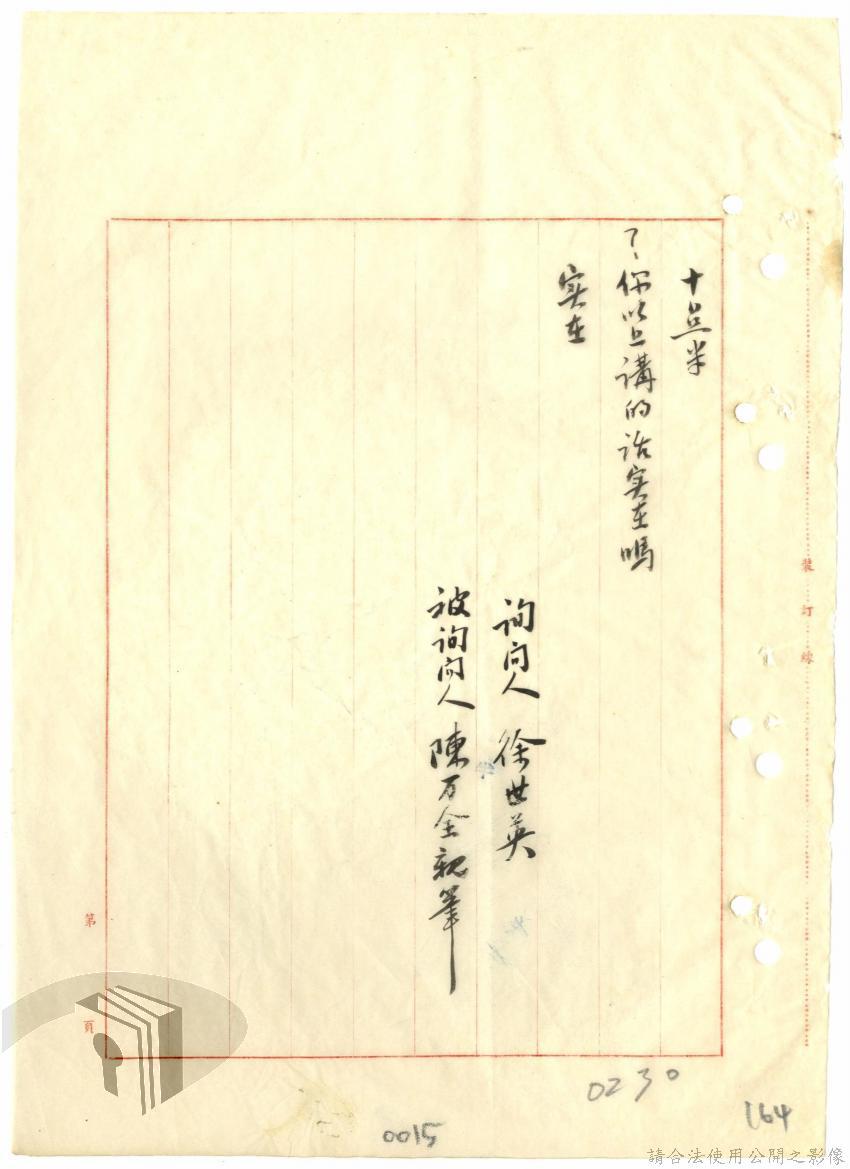 十点半
了、你以上講的话实在嗎
实在
询问人 徐世英
被询问人 陳万全親筆
裝訂線
第 頁
0230
0015
164
請合法使用公開之影像